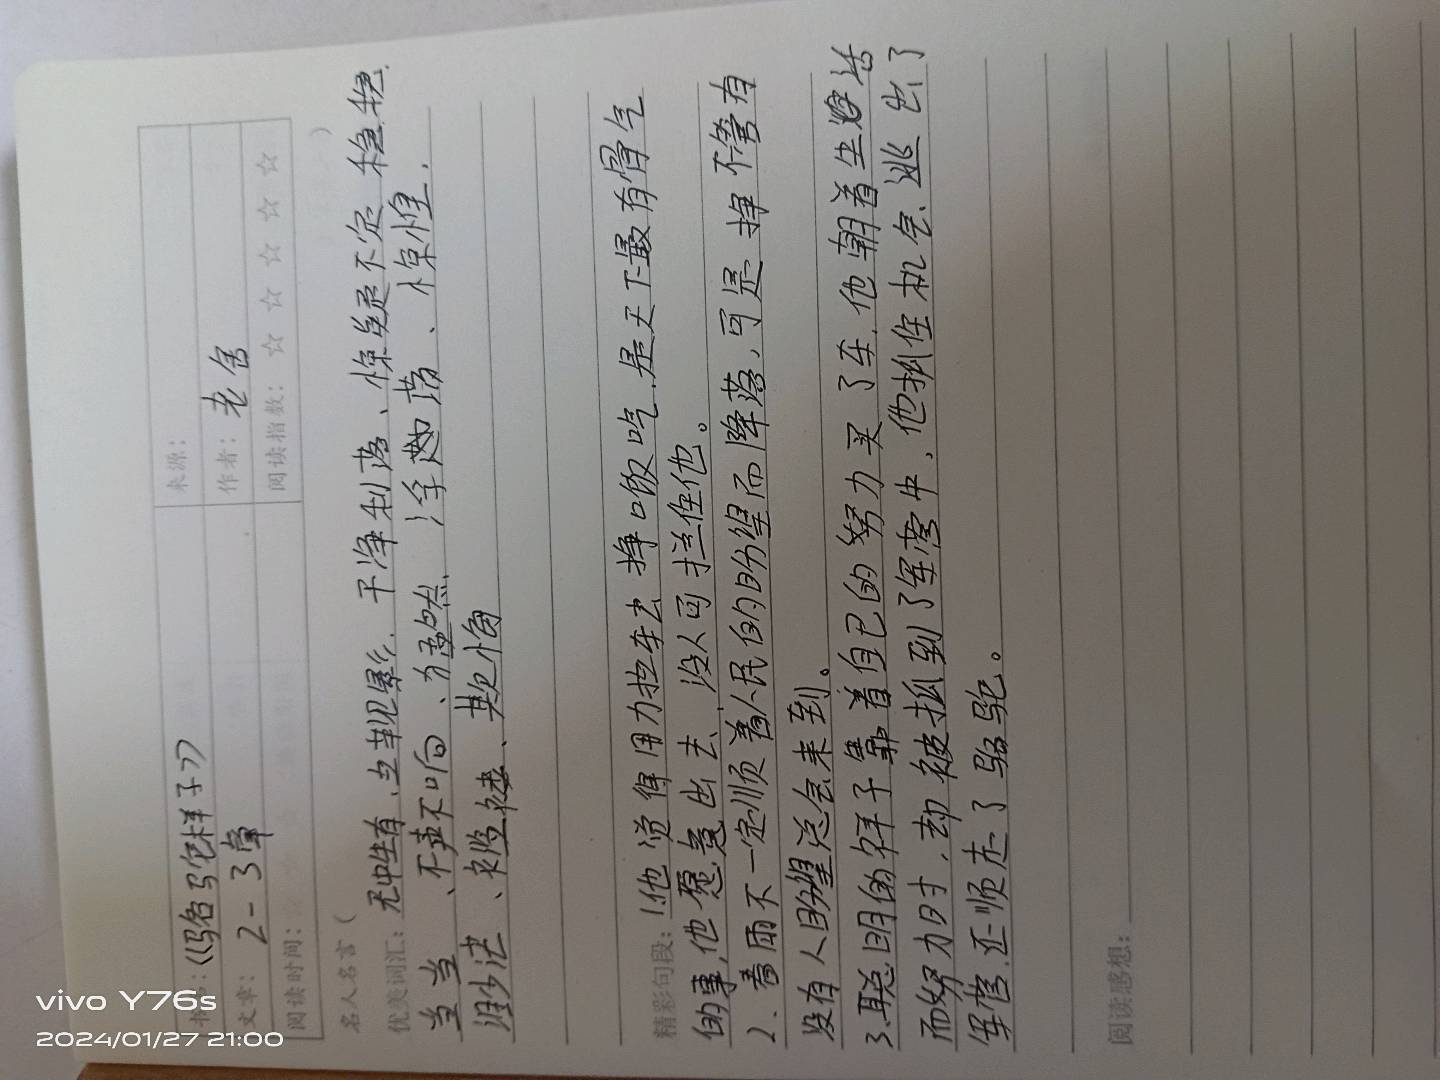 书名：《骆驼祥子》
来源：
文章：2-3章
作者：老舍
阅读时间：
阅读指数：☆ ☆ ☆ ☆ ☆
名人名言（ ）
优美词汇：无中生有、立竿见影、干净利落、惊疑不定、稳稳
当当、不声不响、为盗 浮 落、惊惶、
泄 、褴褛、犄角
精彩句段：1.他觉得用力拉车去挣口饭吃，是天下最有骨气
的事，他愿意出去，没人可拦住他。
2、着雨不一定顺着人民的盼望而降落，可是挣不管有
没有人盼望总会来到。
3.聪明的祥子靠着自己的努力买了车，他朝着生活
而努力时，却被抓到了军营中，他抓住机会，逃出了
军营，还顺走了骆驼。
阅读感想：
vivo Y76s
2024/01/27 21:00